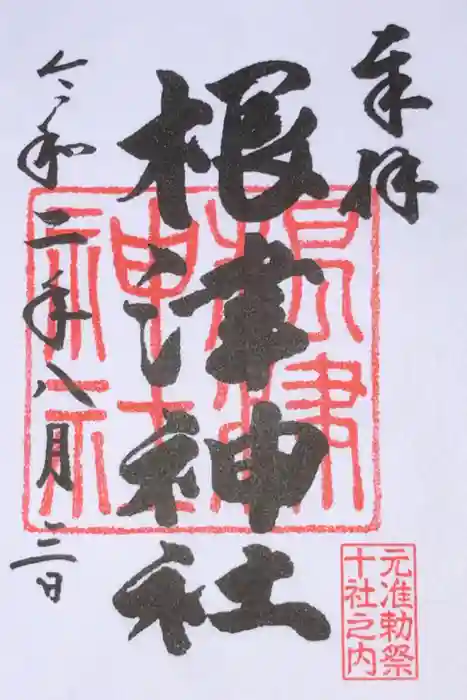 奉拝
根津神社
令和二年八月三日
根津
神社
元准勅祭
十社之内